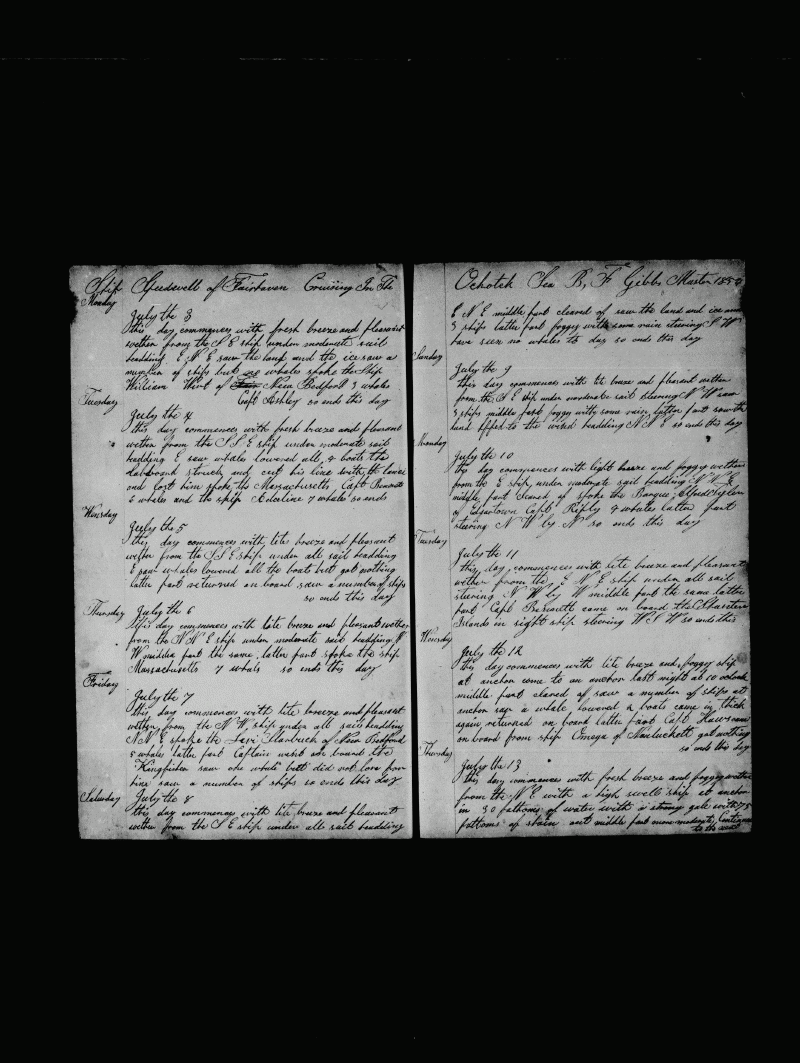 Ship Speedwell of Fairhaven Cruising In The
Monday
July the 3
this day commences with fresh breeze and pleasant
wether from the S E ship under moderate sail
heading E N E saw the land and the ice saw a
number of ships but no whales spoke the Ship
William Wirt of New Bedford 3 whales
Capt Ashley so ends this day
Tuesday
July the 4
this day commences with fresh breeze and pleasant
wether from the S S E ship under moderate sail
heading E saw whales lowered all 4 boats the
larboard struck and cut his line with the lance
and lost him spoke the Massachusetts Capt
6 whales and the ship Adeline 7 whales so ends
Wensday
July the 5
this day commences with lite breeze and pleasant
wether from the S S E ship under all sail heading
E saw whales lowered all the boats but got nothing
latter part returned on board saw a number of ships
so ends this day
Thursday
July the 6
this day commences with lite breeze and pleasant wether
from the N N E ship under moderate sail heading N
W middle part the same latter part spoke the ship
Massachusetts 7 whals so ends this day
Friday
July the 7
this day commences with lite breeze and pleasant
wether from the N W ship under all sail heading
N N E spoke the Levi Starbuck of New Bedford
5 whales latter part Captain went on board the
Kingfisher saw one whale but did not low for
him saw a number of ships so ends this day
Saturday
July the 8
this day commences with lite breeze and pleasant
wether from the S E ship under all sail heading
Ochotck Sea B, F Gibbs Master 1850
E N E middle part cleared of saw the land and ice and
3 ships latter part foggy with some rain steering S W
have seen no whales to day so ends this day
Sunday
July the 9
this day commences with lite breze and plesant wether
from the S E ship under moderate sail steering N W saw
3 ships middle part foggy with some rain latter part saw the
land to the wind heading N S E so ends this day
Monday
July the 10
this day commences with light breeze and foggy wether
from the E ship under moderate sail heading N
middle part cleared of spoke the Barque Alfred Tyler
of Edgartown Capt Riply 4 whales latter part
steering N W by N so ends this day
Tuesday
July the 11
this day commences with lite breeze and pleasant
wether from the E N E ship under all sail
steering N W by W middle part the same latter
part Capt came on board the Shantar
Islands in sight ship steering W S W so ends this
Wensday
July the 12
this day commences with lite breze and foggy ship
at anchor come to an anchor last night at 10 oclock
middle part cleared of saw a number of ships at
anchor saw a whale lowered 2 boats came in thick
again returned on board latter part Capt
on board from ship Omega of Nantuckett got nothing
so ends this day
Thursday
July the 13
this day commences with fresh breeze and foggy wether
from the N E with a high swell ship at anchor
in 30 fathoms of water with a strong gale with 75
fathoms of chain out middle part more moderate
to the next